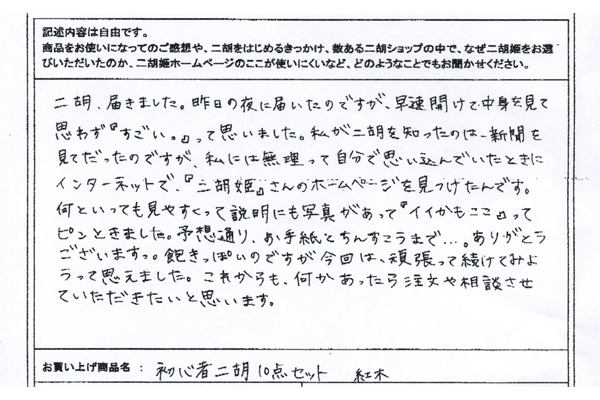 記述内容は自由です。
商品をお使いになってのご感想や、二胡をはじめるきっかけ、数ある二胡ショップの中で、なぜ二胡姫をお選
びいただいたのか、二胡姫ホームページのここが使いにくいなど、どのようなことでもお聞かせください。
二胡、届きました。昨日の夜に届いたのですが、早速開けて中身を見て
思わず『すごい。』って思いました。私が二胡を知ったのは、新聞を
見てだったのですが、私には無理って自分で思い込んでいたときに
インターネットで、『二胡姫』さんのホームページを見つけたんです。
何といっても見やすくって説明にも写真があって『イイかもここ』って
ピンときました。予想通り、お手紙とちんすこうまで…。ありがとう
ございますっ。飽きっぽいのですが今回は、頑張って続けてみよ
うって思えました。これからも、何かあったら注文や相談させ
ていただきたいと思います。
お買い上げ商品名： 初心者二胡10点セット 紅木